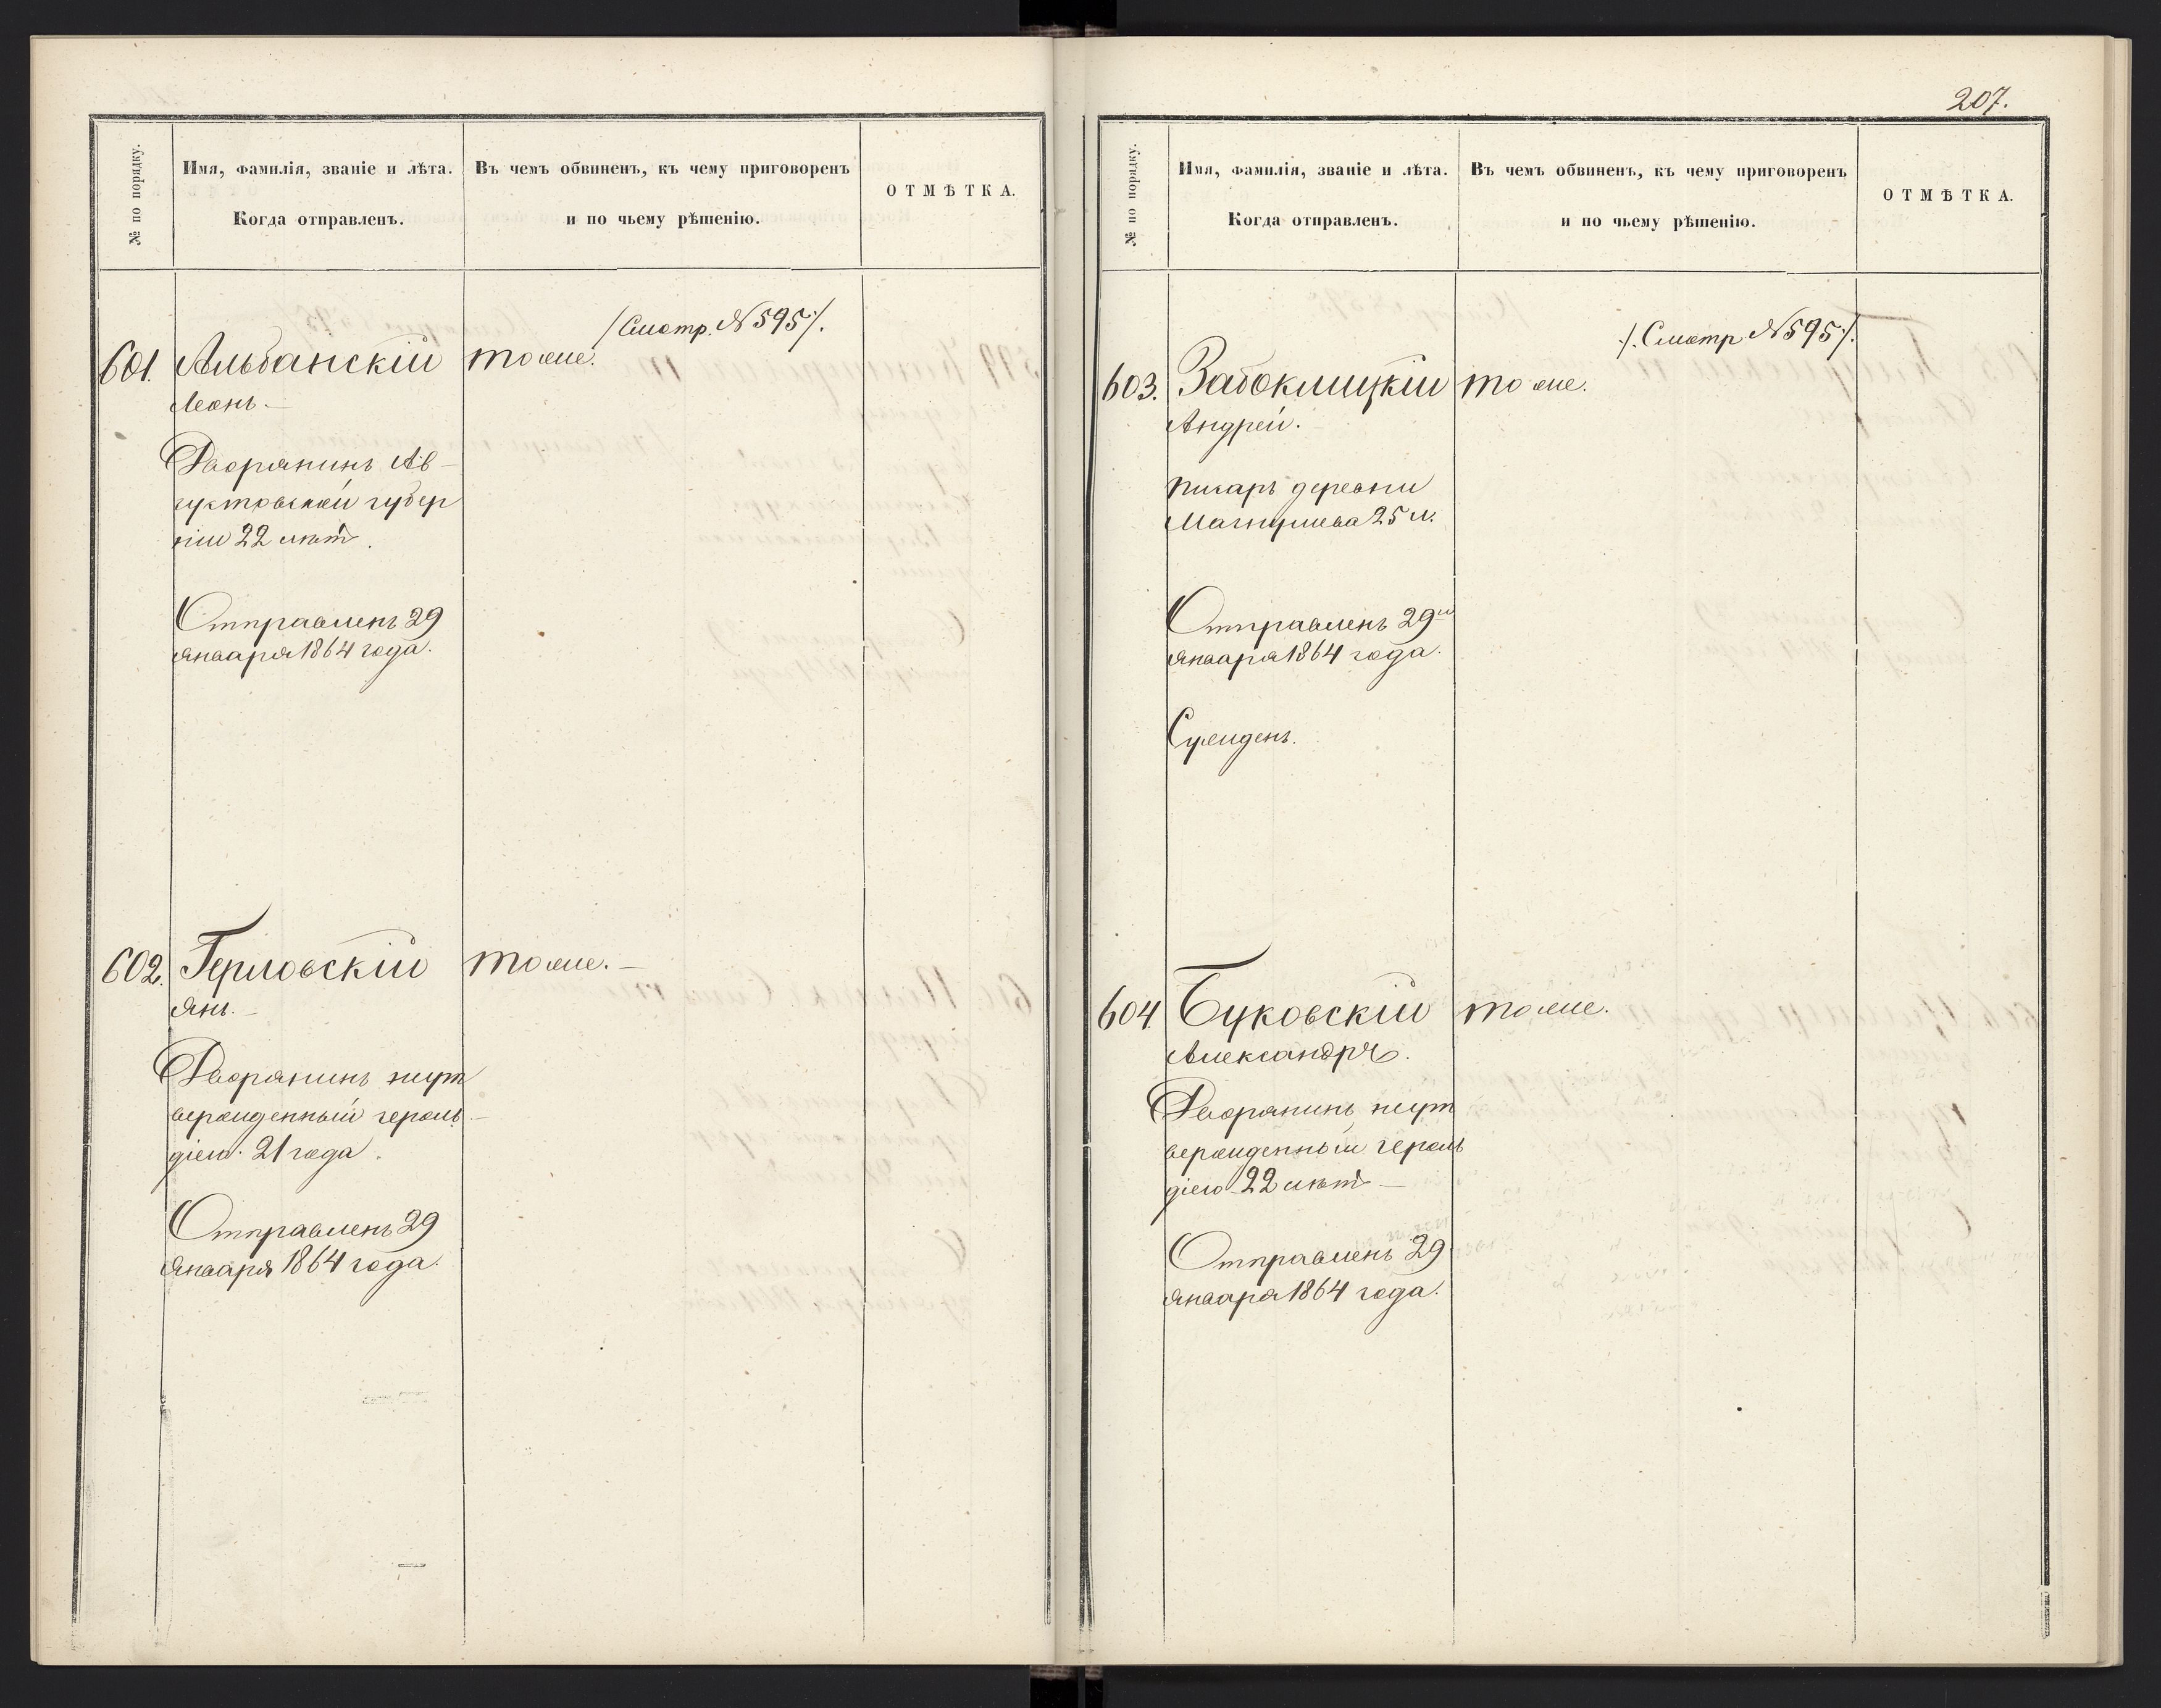 № по порядку.
Имя, фамилія, званіе и лѣта.
Когда отправленъ.
Въ чемъ обвиненъ, къ чему приговоренъ
и по чьему рѣшенію.
ОТМѢТКА.
/Смотр. № 595/.
601. Альбанскій тоже.
Леонъ.—
Дворянинъ Ав-
густовской губер
ніи 22 лѣтъ.
Отправленъ 29
Января 1864 года.
602. Герловскій тоже.—
Янъ.—
Дворянинъ неут
вержденный героль-
діею. 21 года.
Отправленъ 29
Января 1864 года.
207.
№ по порядку.
Имя, фамилія, званіе и лѣта.
Когда отправленъ.
Въ чемъ обвиненъ, къ чему приговоренъ
и по чьему рѣшенію.
ОТМѢТКА.
/. Смотр № 595/.
603. Забоклицкій тоже.
Андрей.
Писарь деревни
Магнушева 25 л.
Отправленъ 29го
Января 1864 года.
Суждены.
604. Буковскій тоже.
Александръ.
Дворянинъ, неут
вержденный героль
діею 22 лѣтъ—
Отправленъ 29
Января 1864 года.